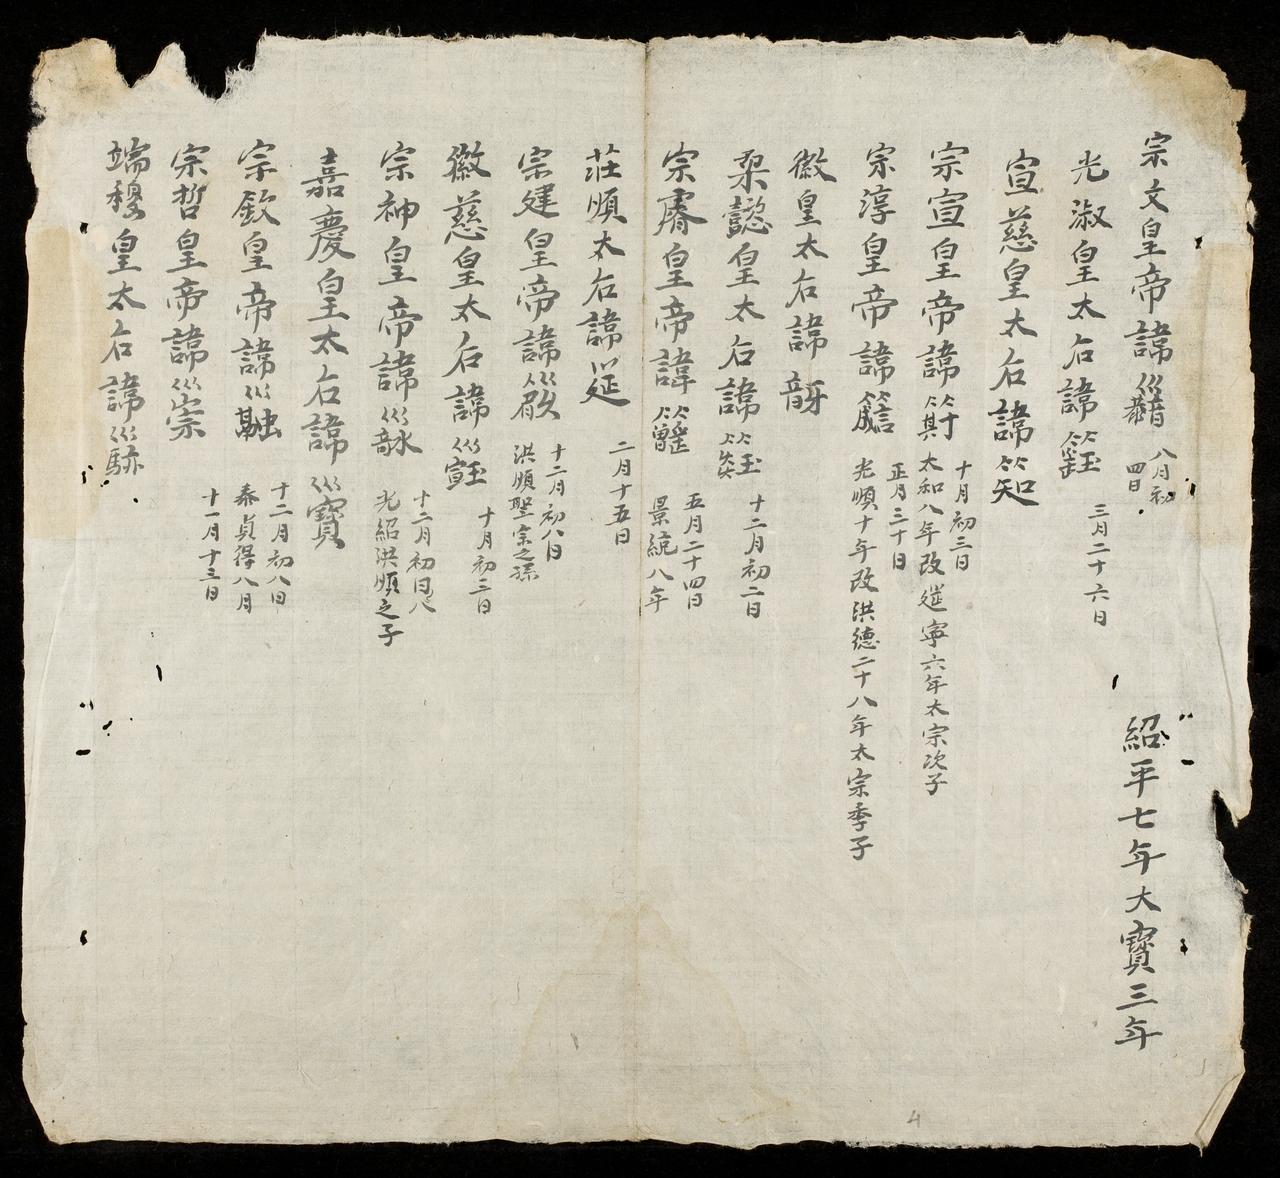 宗文皇帝諱 八月初四日 紹平七年大寶三年
光淑皇太后諱 三月二十六日
宣慈皇太后諱
宗宣皇帝諱 十月初三日 太和八年改 延寧六年太宗次子
宗淳皇帝諱 正月三十日 光順十年改洪德二十八年太宗季子
徽皇太后諱
柔懿皇太后諱 十二月初二日
宗睿皇帝諱 五月二十四日 景統八年
莊順太后諱 二月十五日
宗建皇帝諱 十二月初八日 洪順聖宗之孫
徽慈皇太后諱 十月初三日
宗神皇帝諱 十二月初八日 光紹洪順之子
嘉慶皇太后諱
宗欽皇帝諱 十二月初八日 泰貞得八月 十一月十三日
宗哲皇帝諱
端穆皇太后諱